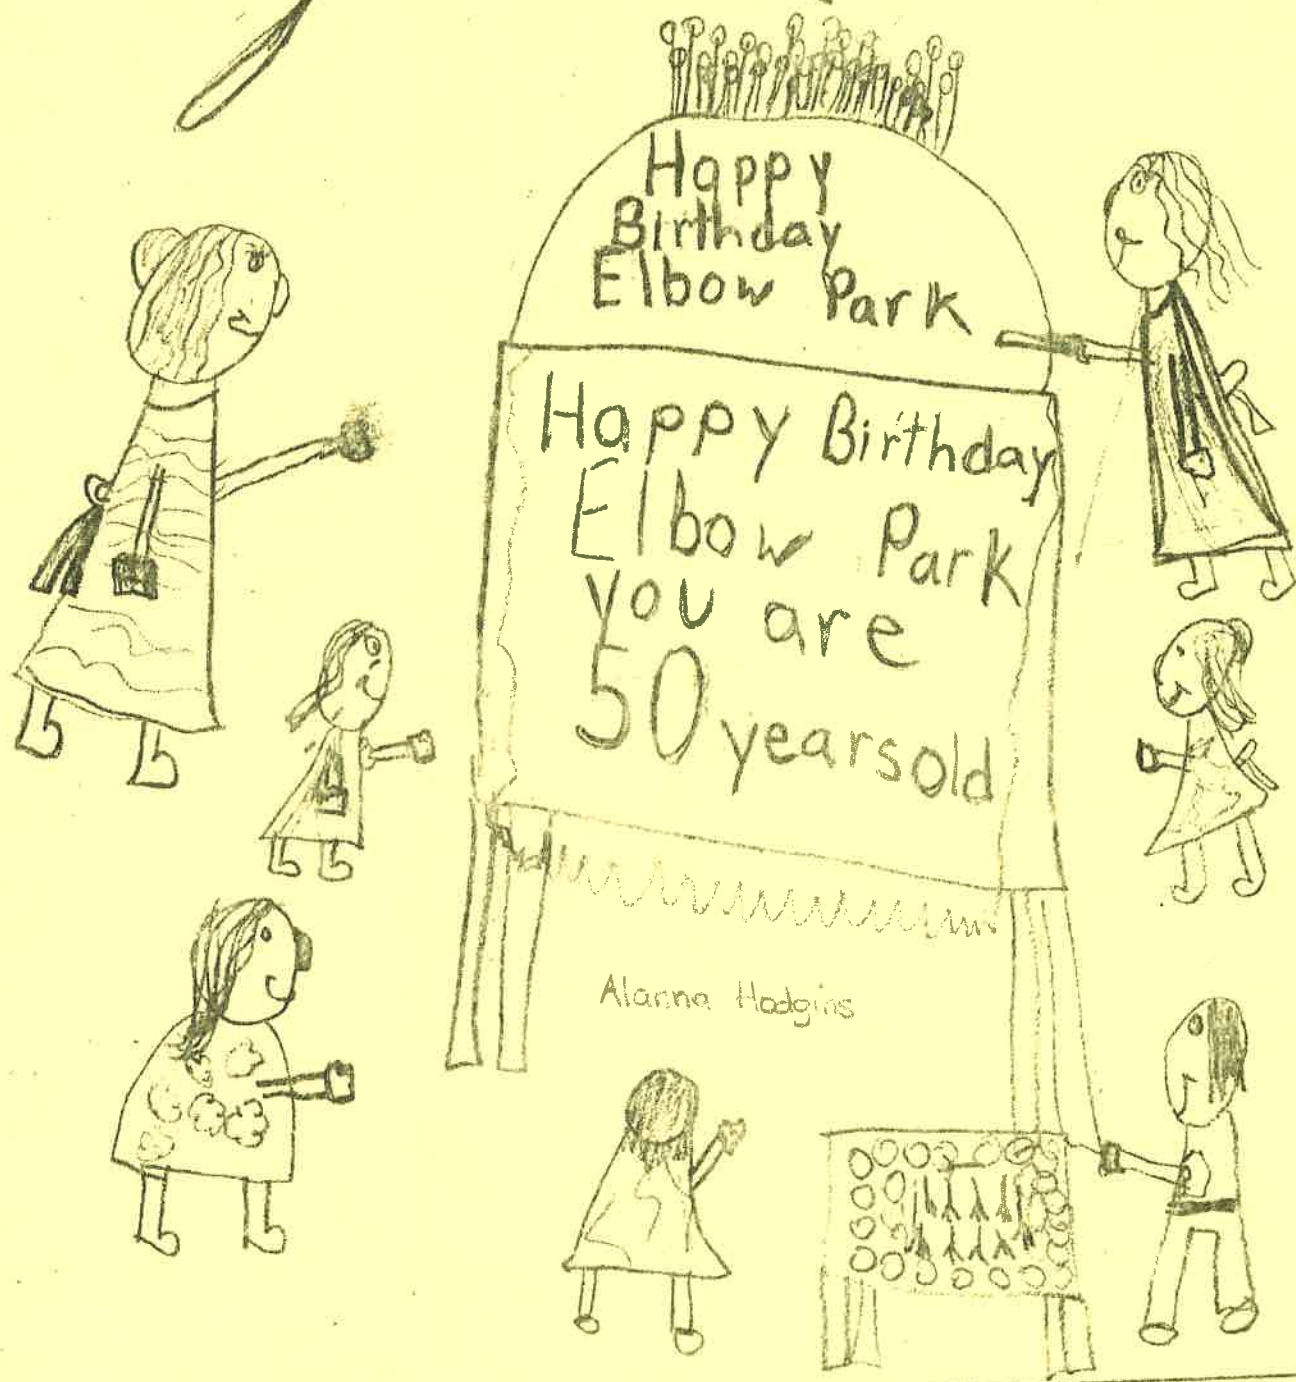 Happy
Birthday
Elbow Park
Happy Birthday
Elbow Park
you are
50 years old
Alanna Hodgins